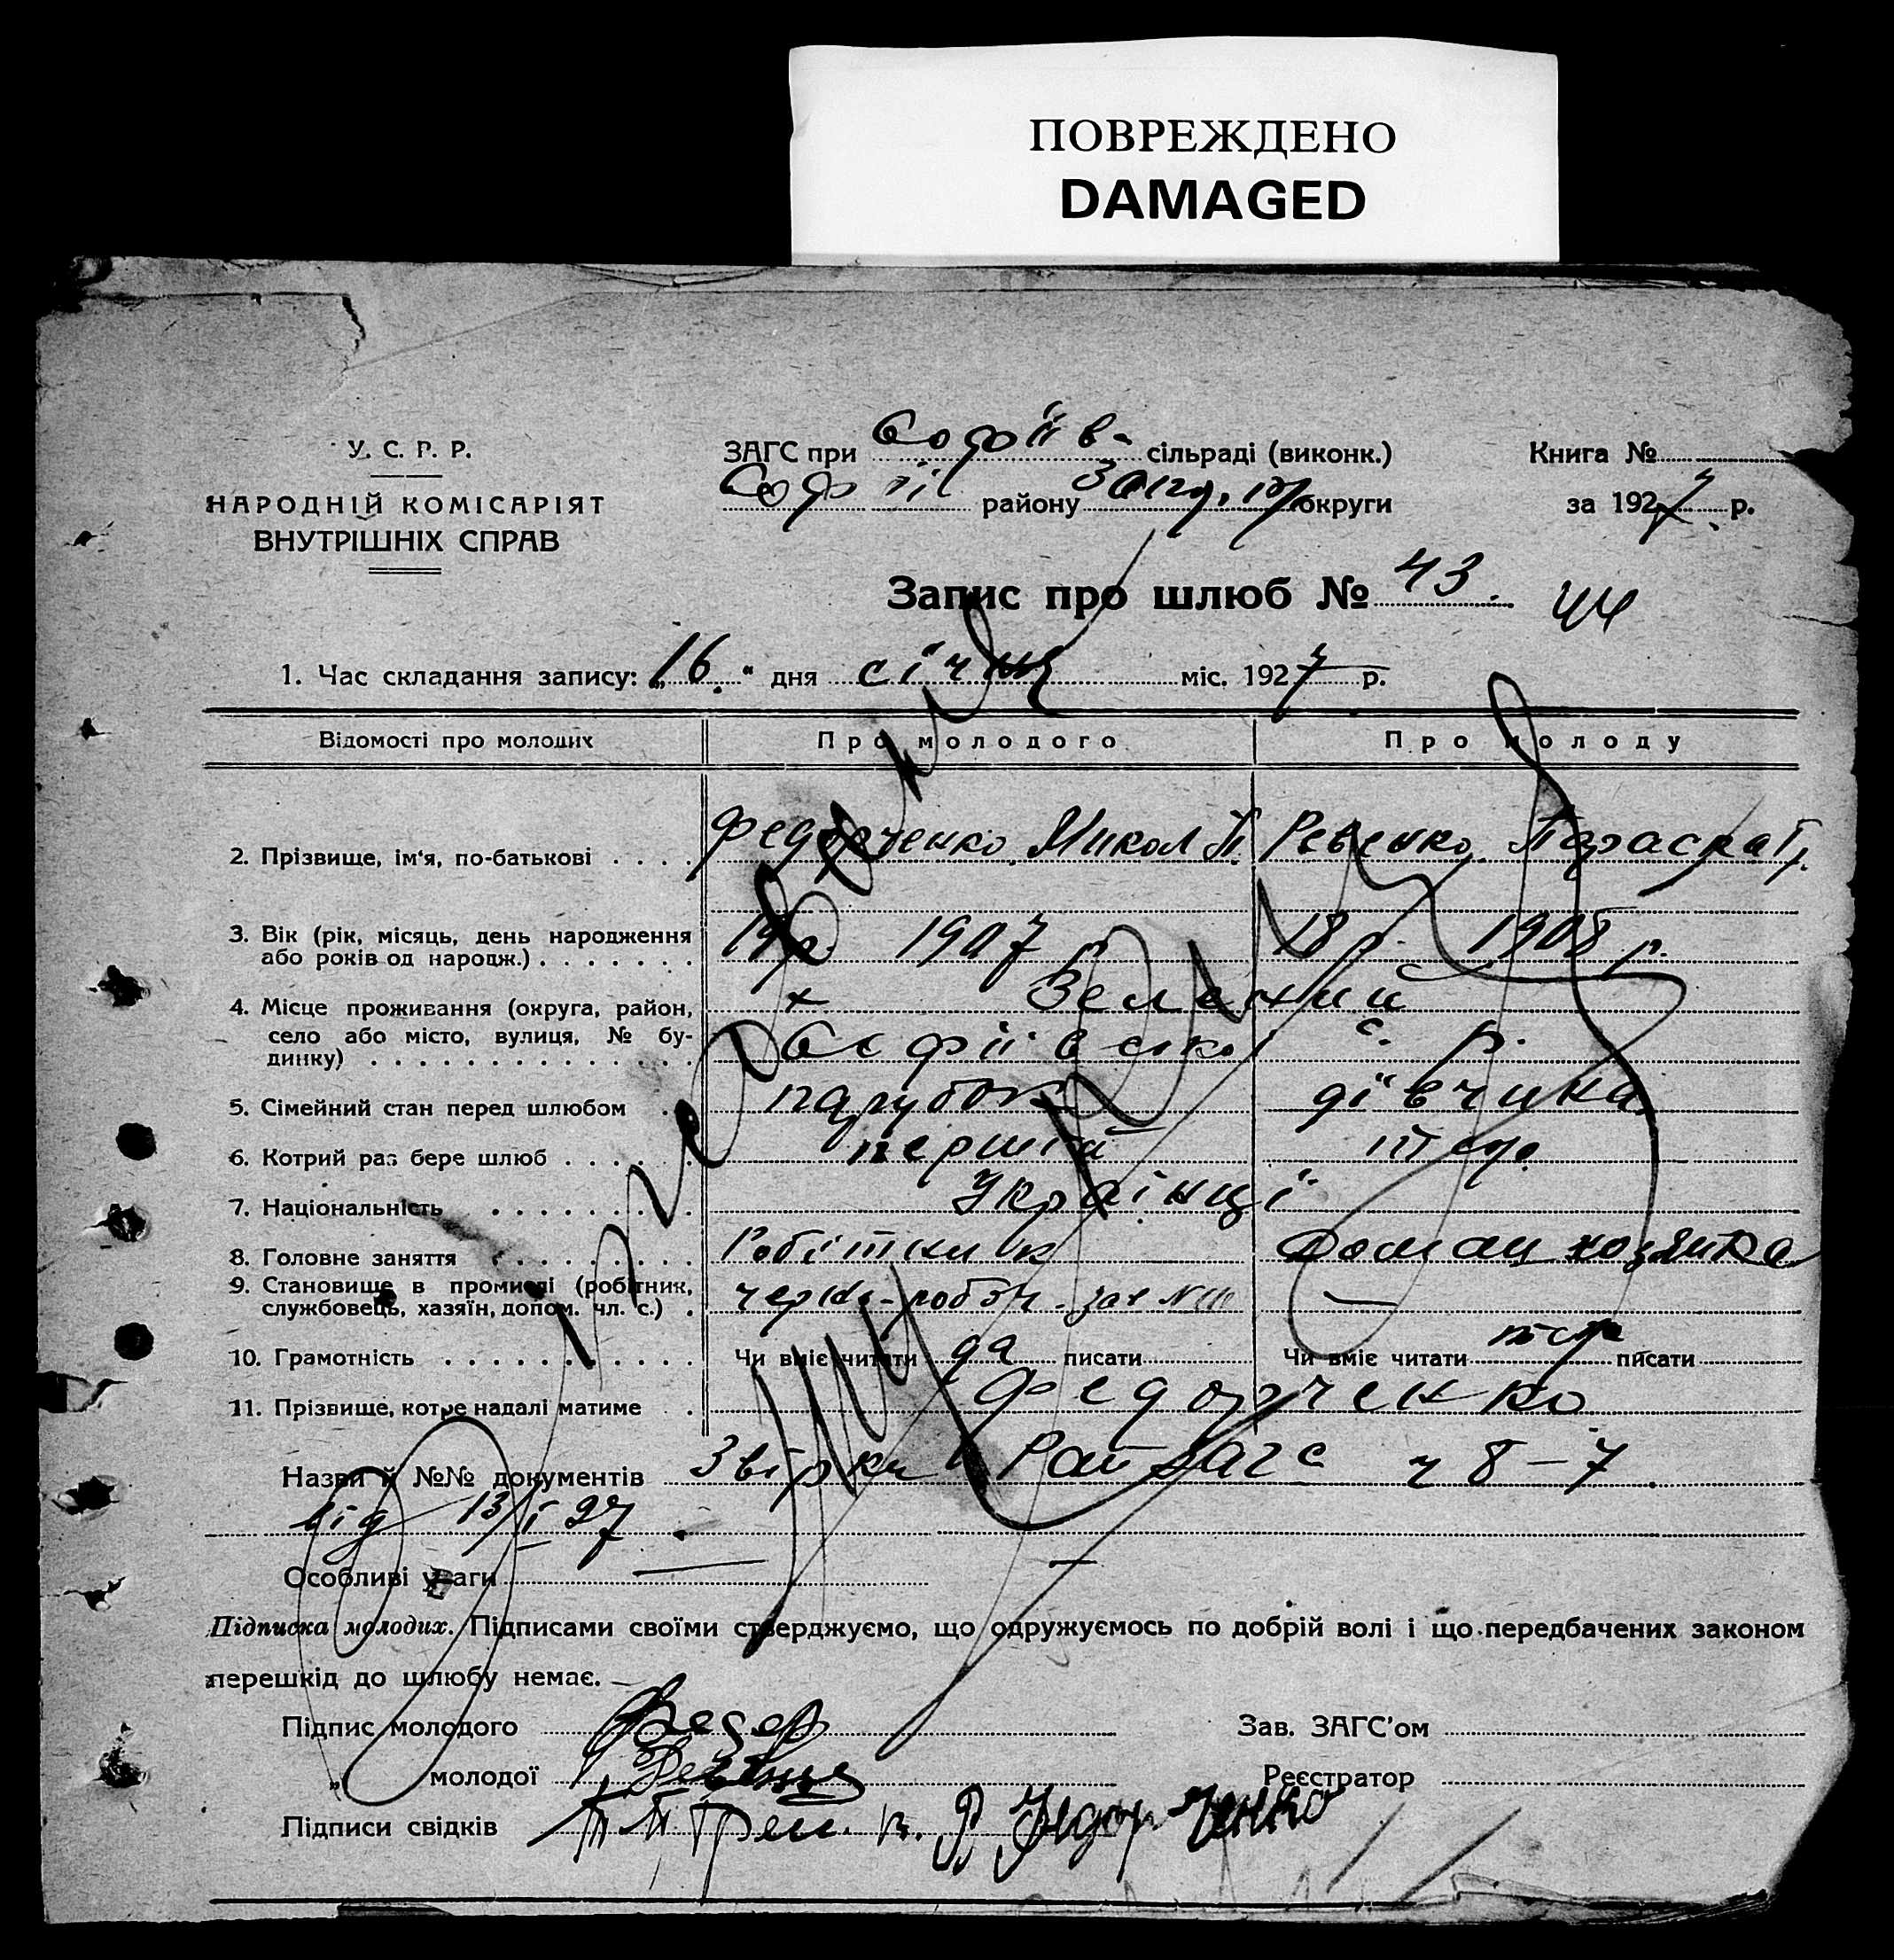 ПОВРЕЖДЕНО
DAMAGED
У. С. Р. Р.
НАРОДНІЙ КОМІСАРІЯТ
ВНУТРІШНІХ СПРАВ
ЗАГС при Софіїв- сільраді (виконк.)
Софіїв району Запор. округи
Книга №
за 1927 р.
Запис про шлюб № 43. 44
1. Час складання запису: „16." дня січня міс. 1927 р.
Відомості про молодих Про молодого Про молоду
2. Прізвище, ім'я, по-батькові . . . . Федорченко Микол П. Ревенко Параска Гр.
3. Вік (рік, місяць, день народження або років од народж.) . . . . . . . 19 р. 1907 р 18 р. 1908 р.
4. Місце проживання (округа, район, х Зелений
село або місто, вулиця, № будинку) . . . . . . . . . . . . . . Софіївської с. р.
5. Сімейний стан перед шлюбом . . парубок дівчина
6. Котрий раз бере шлюб . . . . . . перший
7. Національність . . . . . . . . . Українці
8. Головне заняття . . . . . . . . . Робітник Домаш хозяйка
9. Становище в промислі (робітник, службовець, хазяїн, допом. чл. с.) . —
10. Грамотність . . . . . . . . . . . Чи вміє читати да писати Чи вміє читати писати
11. Прізвище, котре надалі матиме . Федорченко
Назви й №№ документів Звірки Райзагс ч 8 — 7
від 13/I 27
Особливі уваги — —
Підписка молодих. Підписами своїми стверджуємо, що одружуємось по добрій волі і що передбачених законом
перешкід до шлюбу немає.
Підпис молодого Федор
Зав. ЗАГС'ом
„ молодої
Реєстратор
Підписи свідків Федорченко